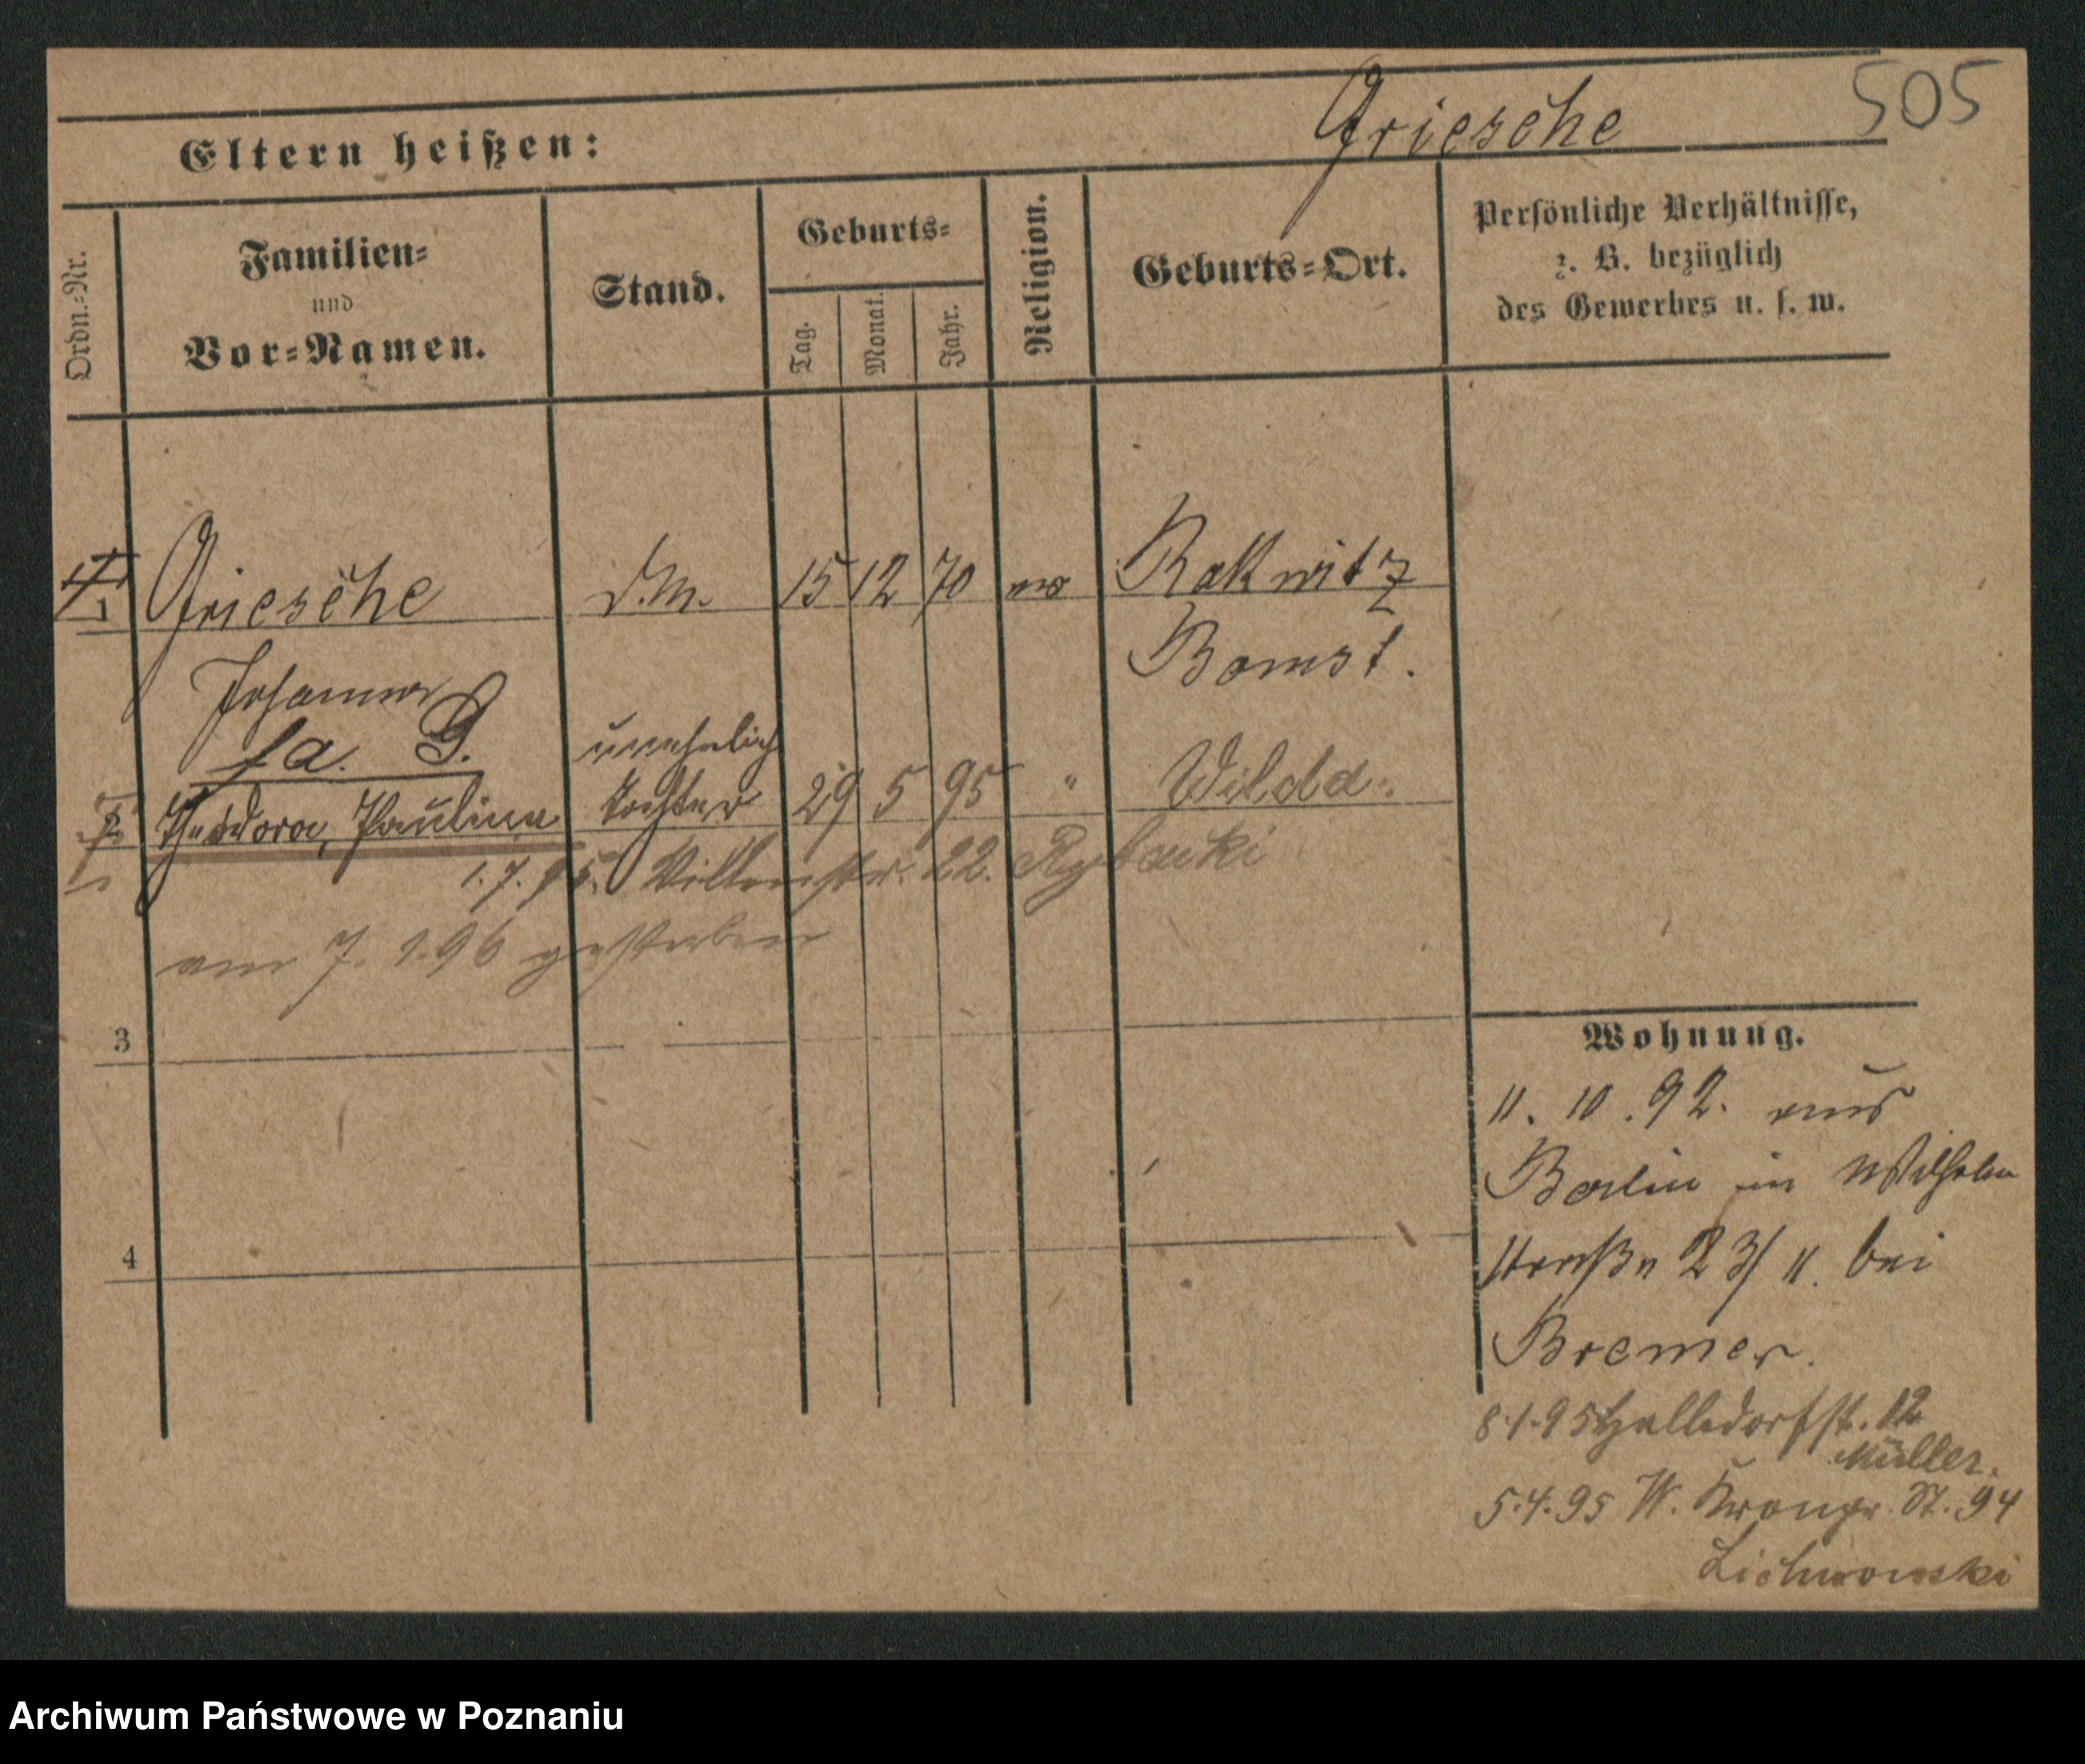 Griesche 505
Eltern heißen:
Ordn.=Nr.
Familien=
und
Vor=Namen.
Stand.
Geburts=
Tag. Monat. Jahr.
Religion.
Geburts=Ort.
Persönliche Verhältnisse,
z. B. bezüglich
des Gewerbes u. s. w.
1 Griesche D.M. 15 12 70 ev Rakwitz
Johanna Bomst.
unehelich
2 Theodora, Paulina Tochter 29 5 95 " Wilda
1.7.95. 22. Rybaki
am 7. 1. 96 gestorben
3
4
Wohnung.
11. 10. 92. aus
Berlin in Wilhelm
straße 23/II. bei
Bremer.
8.1.95 Halbdorfst. 12
Müller.
5.4.95 W. Kronpr. St. 94
Lichnowski
Archiwum Państwowe w Poznaniu